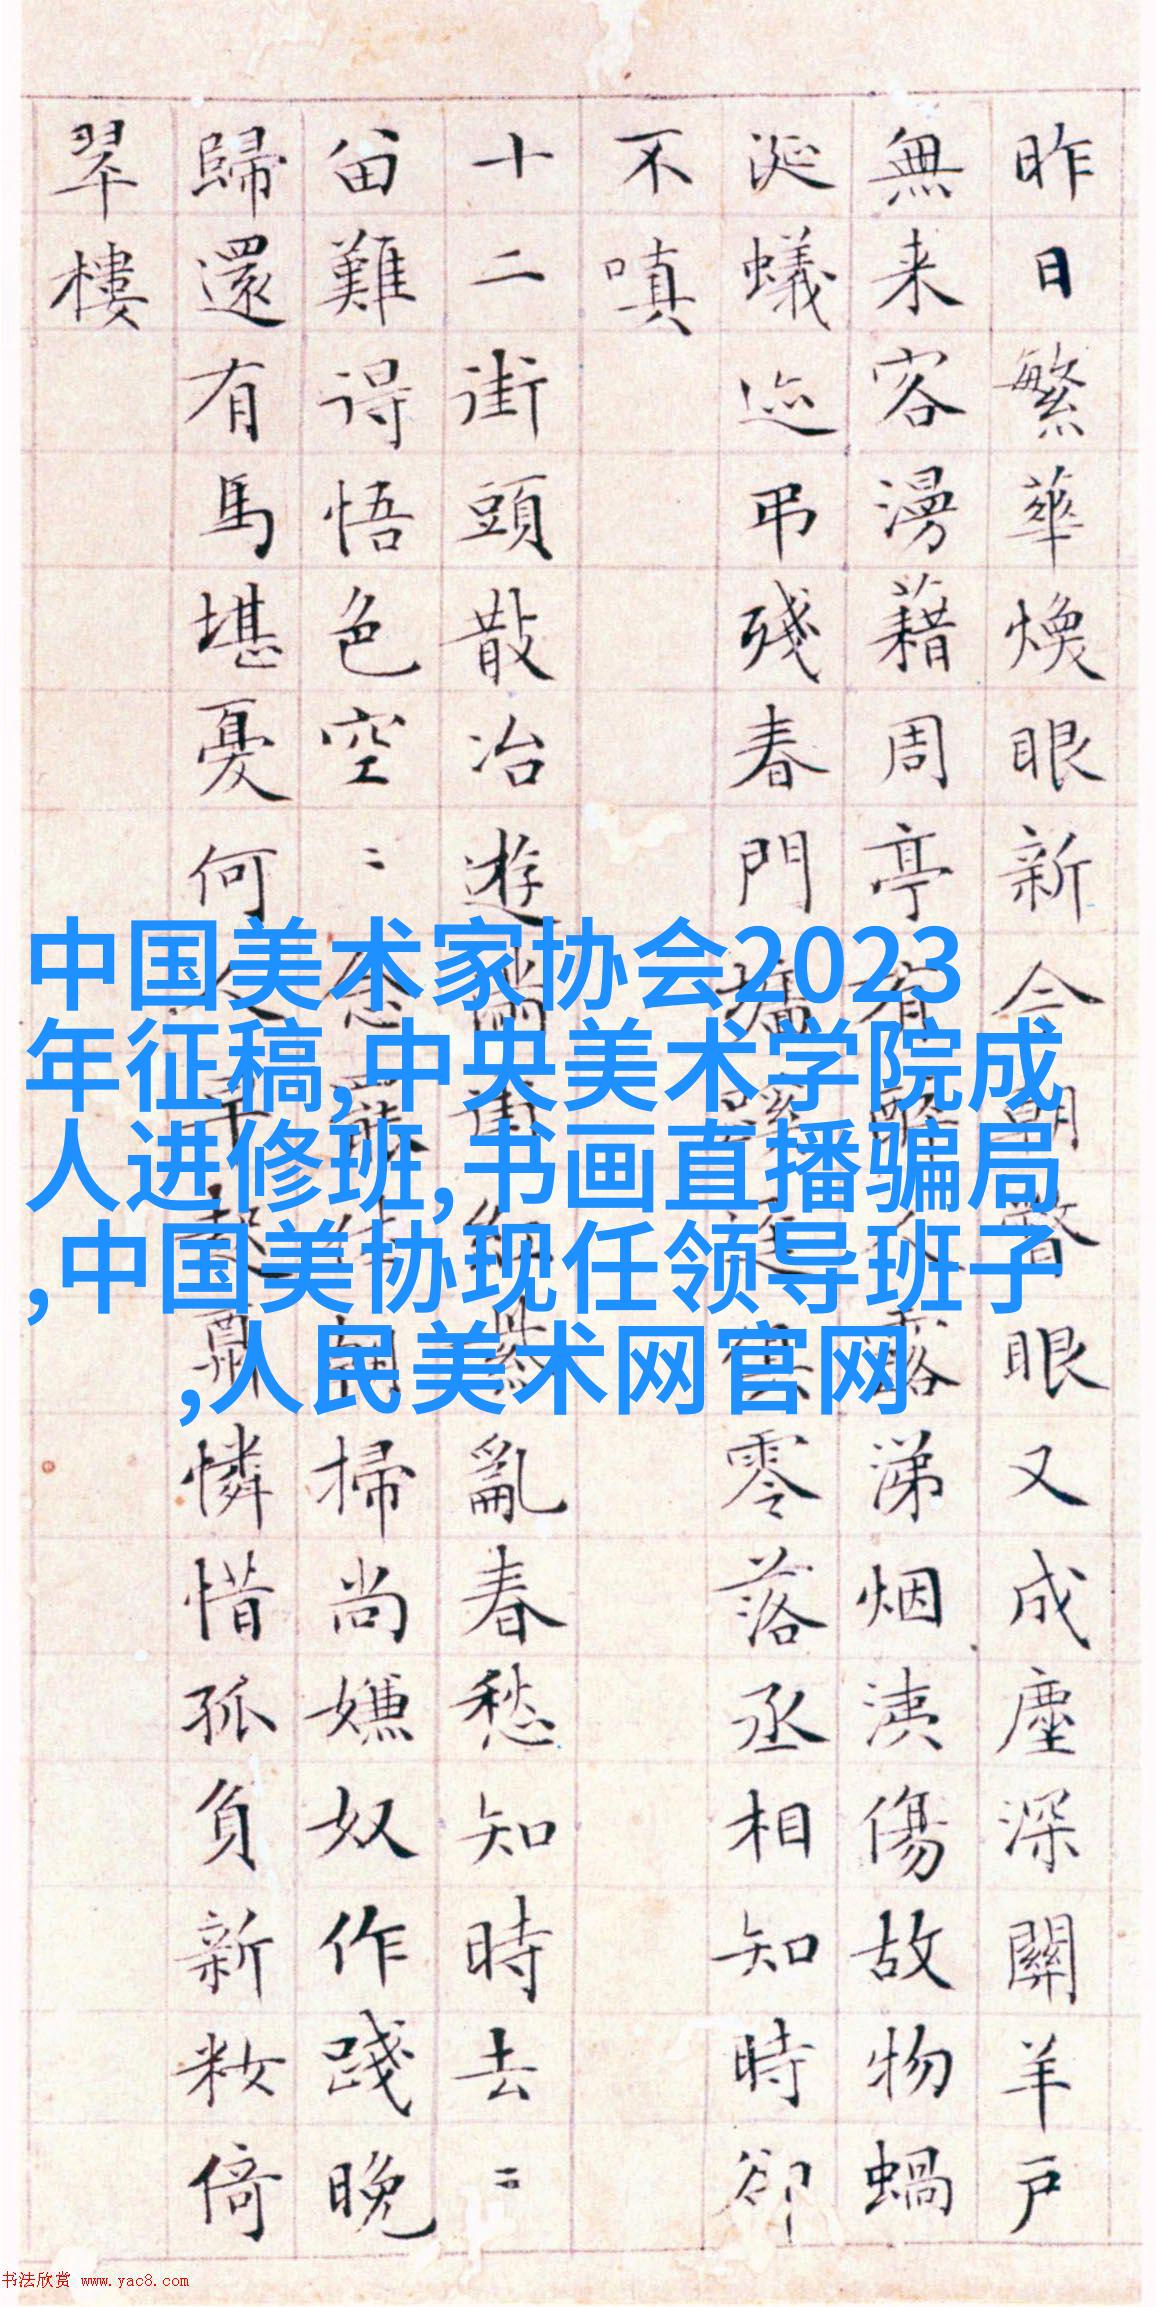 昨日繁華煥眼新今朝瞥眼又成塵深關羊戶
無来客漫藉周亭有醉人露涕烟洟傷故物蝸
涎蟻迹弔殘春門墻蹊徑俱零落丞相知時卻
不嗔
十二街頭散冶遊滿亂春愁知時去〻
畄難得悟色空〻念掃尚嫌奴作踐晚
歸還有馬堪憂何人早起憐惜孤負新妝倚
翠樓
中国美术家协会2023
年征稿,中央美术学院成
人进修班,书画直播骗局
,中国美协现任领导班子
,人民美术网官网
书法欣赏 www.yac8.com